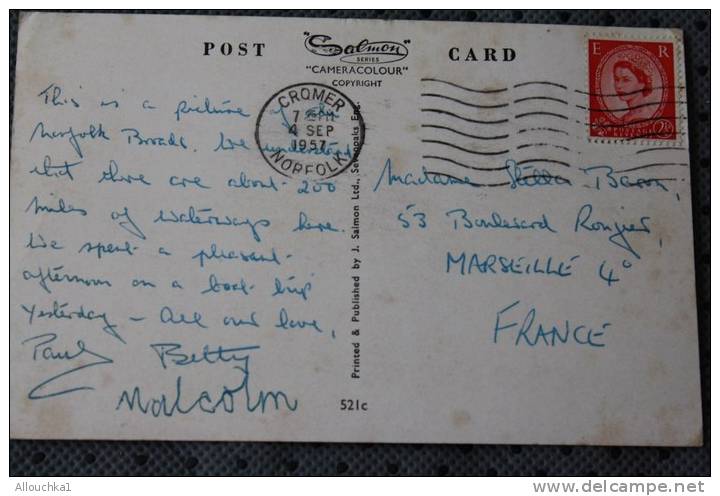 POST CARD
"Salmon"
SERIES
"CAMERACOLOUR"
COPYRIGHT
E R
CROMER
4 SEP
1957
NORFOLK
This is a picture of the
Norfolk Broads. We understand
that there are about 200
miles of waterways here.
We spent a pleasant
afternoon on a boat trip
yesterday – All our love,
Paul Betty
Malcolm
Printed & Published by J. Salmon Ltd., Sevenoaks Eng.
521c
Madame Stella Baron,
53 Boulevard Rougier,
MARSEILLE 4°
FRANCE
Allouchka1
http://www.delcampe.net